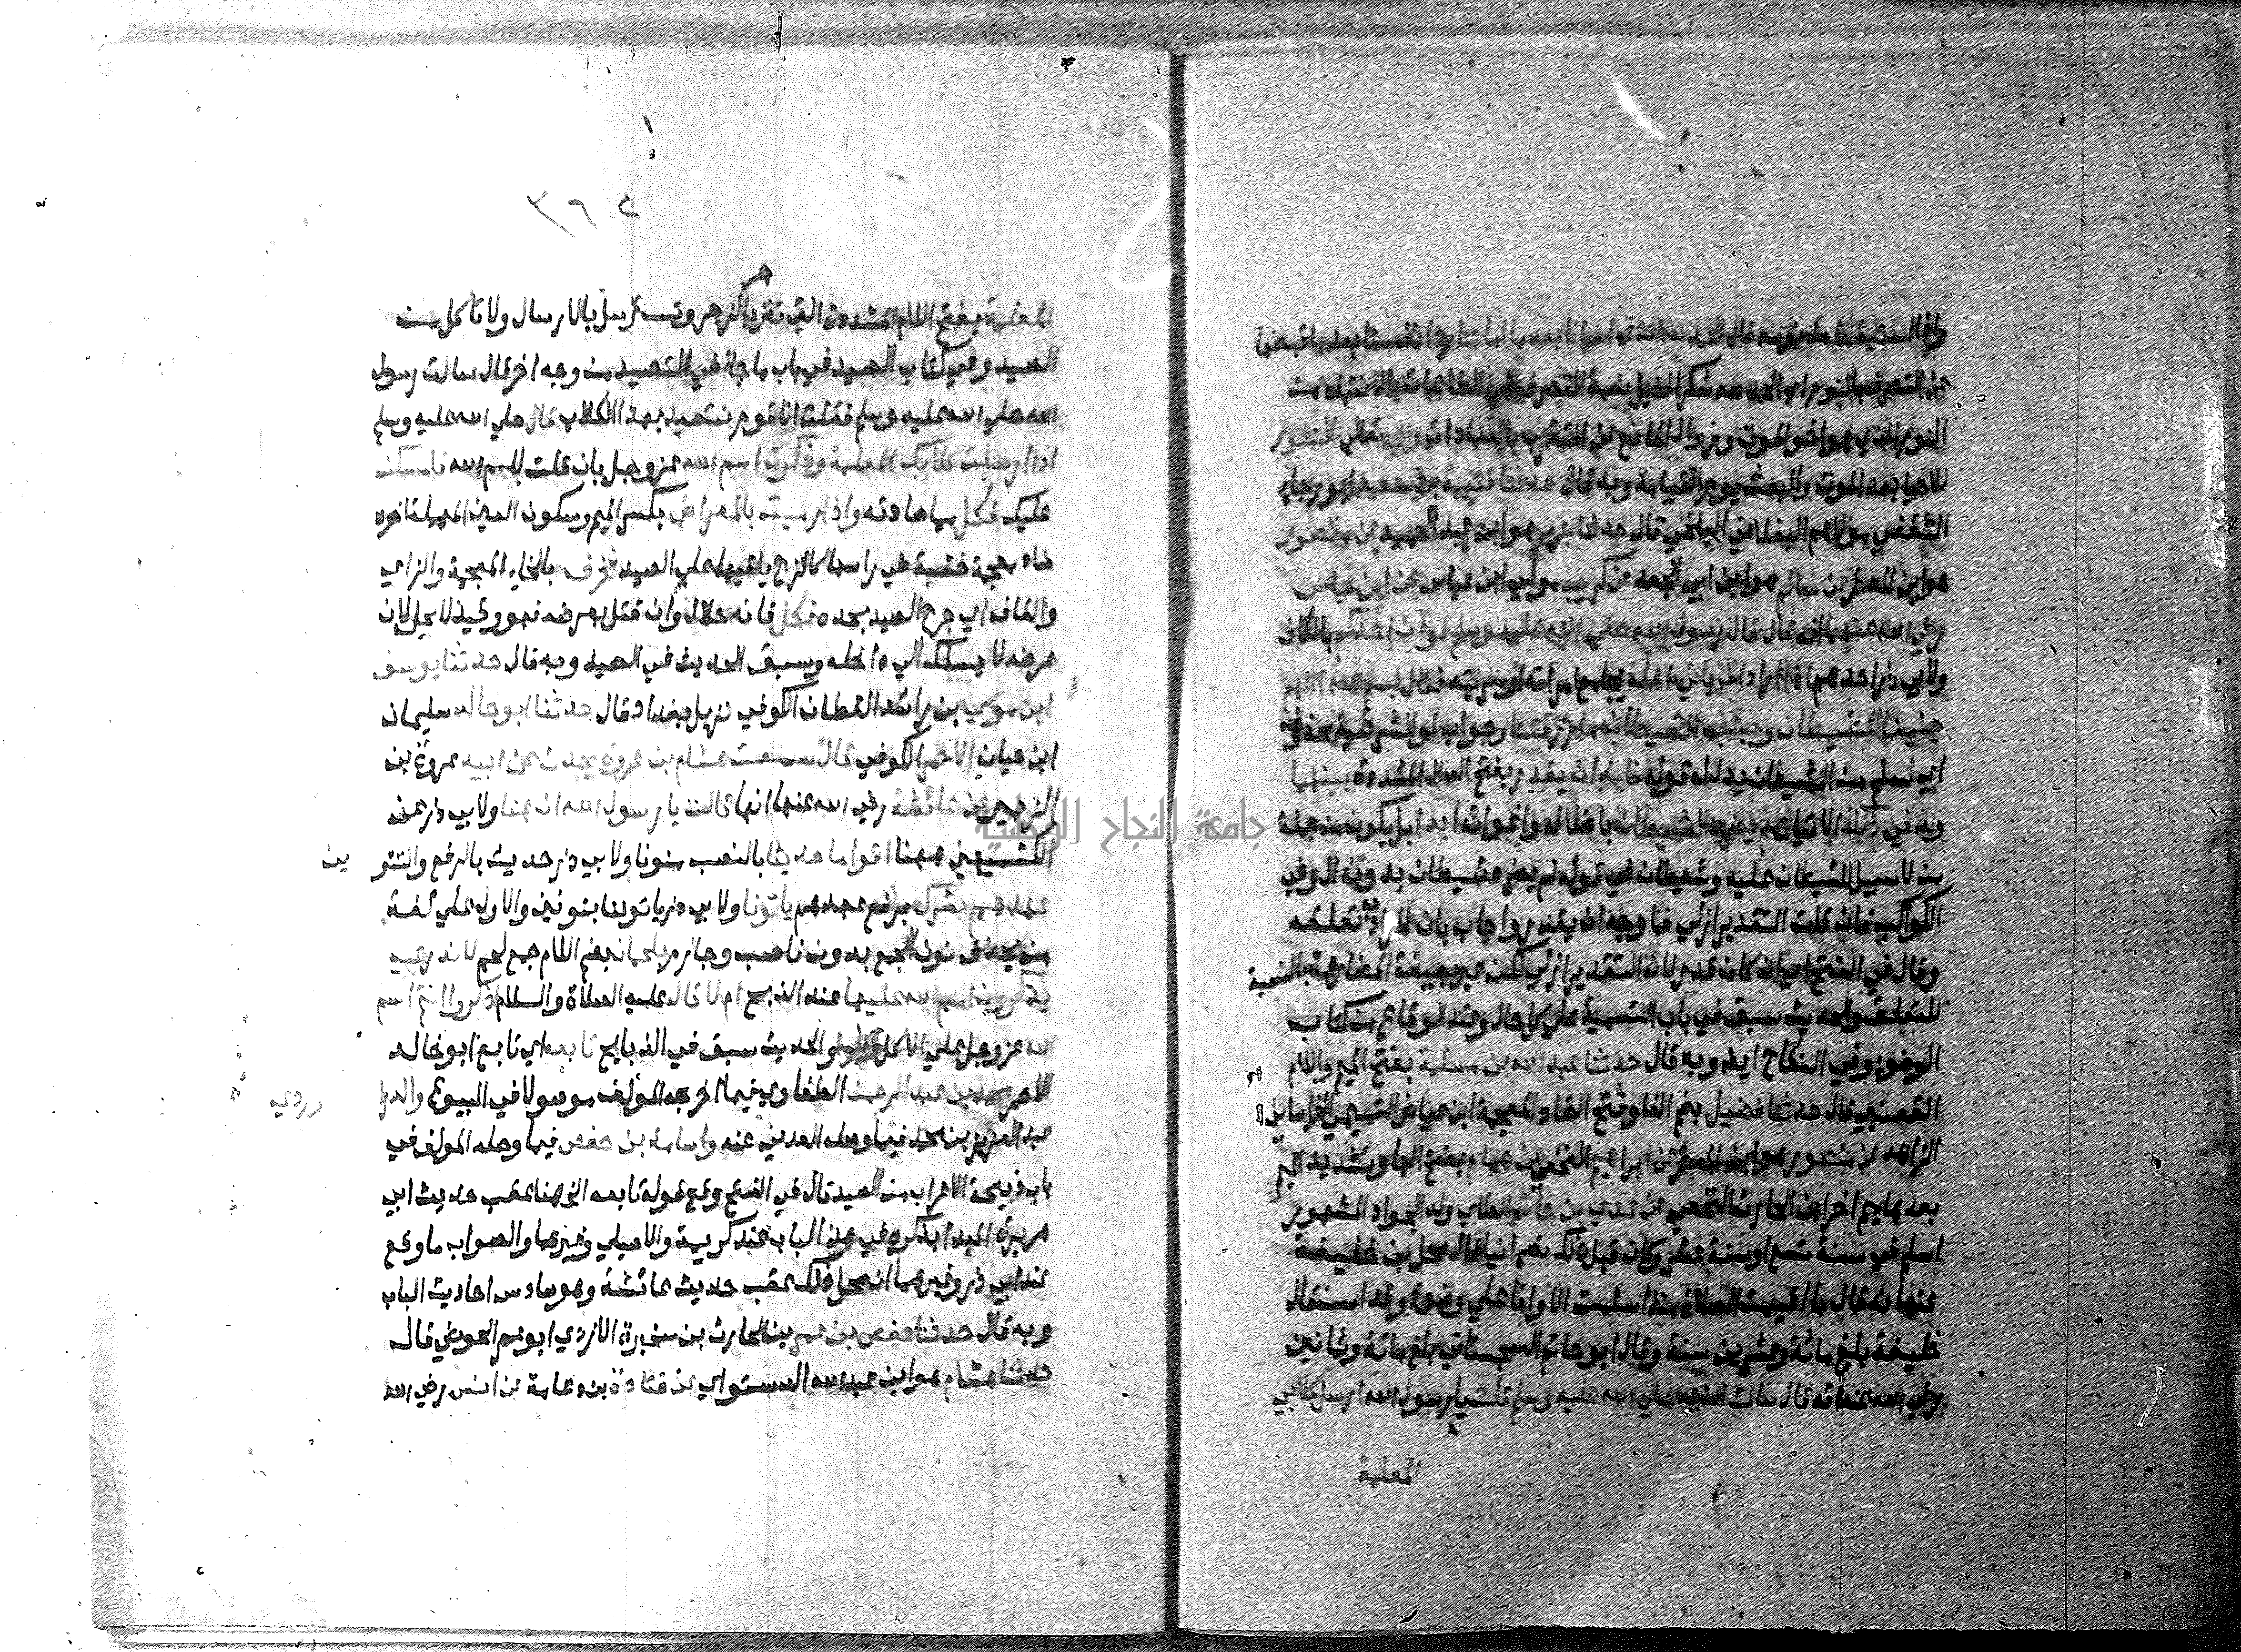 واذا استيقظ من نومه قال الحمد لله الذي احيانا بعد ما اماتنا رد انفسنا بعد ما قبضها
عن التصرف بالنوم اي الحمد لله شكرا لنيل نعمة التصرف في الطاعات بالانتباه من
النوم الذي هو اخو الموت وزوال المانع عن التقرب بالعبادات واليه تعالى النشور
للاحيا بعد الموت والبعث يوم القيامة وبه قال حدثنا قتيبة بن سعيد ابو رجاء
الثقفي مولاهم البغلاني البلخي قال حدثنا جرير هو ابن عبد الحميد عن منصور
هو ابن المعتمر عن سالم هو ابن ابي الجعد عن كريب مولى ابن عباس عن ابن عباس
رضي الله عنهما انه قال قال رسول الله صلي الله عليه وسلم لو ان احدكم بالكاف
ولابي ذر احدهم اذا اراد ان ياتي اهله يجامع امراته او سريته فقال بسم الله اللهم
جنبنا الشيطان وجنب الشيطان ما رزقتنا وجواب لو الشرطية محذوف
اي لسلم من الشيطان يدل له قوله فانه ان يقدر بفتح الدال المشددة بينهما
ولد في ذلك الاتيان لم يضره الشيطان باضلاله واغوائه ابدا بل يكون من جملة
من لا سبيل للشيطان عليه وشيطان في قوله لم يضره شيطان بدون ال وفي
الكواكب فان قلت التقدير ازلي فما وجه ان يقدر واجاب بان المراد به تعلقه
وقال في الفتح اي ان كان قدر لان التقدير ازلي لكن عبر بصيغة المضارعة بالنسبة
للتعلق والحديث سبق في باب التسمية علي كل حال وعند الوقاع من كتاب
الوضوء وفي النكاح ايضا وبه قال حدثنا عبد الله بن مسلمة بفتح الميم واللام
القعنبي قال حدثنا فضيل بضم الفا وفتح الضاد المعجمة ابن عياض التميمي الخراساني
الزاهد عن منصور هو ابن المعتمر عن ابراهيم النخعي عن همام بفتح الها وتشديد الميم
بعدها ميم اخرى ابن الحارث النخعي عن عدي بن حاتم الطائي ولد الجواد المشهور
اسلم في سنة تسع او سنة عشر وكان قبل ذلك نصرانيا قال محل بن خليفة
عنه انه قال ما اقيمت الصلاة منذ اسلمت الا وانا علي وضوء وقد استقال
خليفة بلغ مائة وعشرين سنة وقال ابو حاتم السجستاني بلغ مائة وثمانين
رضي الله عنه انه قال سالت النبي صلي الله عليه وسلم قلت يا رسول الله ارسل كلابي
المعلمة
٣٦٤
المعلمة بفتح اللام المشددة التي تنزجر بالزجر وتسترسل بالارسال ولا تاكل من
الصيد وفي كتاب الصيد في باب ما جاء في التصيد من وجه اخر قال سالت رسول
الله صلي الله عليه وسلم فقلت انا قوم نتصيد بهذه الكلاب قال صلي الله عليه وسلم
اذا ارسلت كلابك المعلمة وذكرت اسم الله عز وجل بان قلت بسم الله فامسكن
عليك فكل مما صادته واذا رميت بالمعراض بكسر الميم وسكون العين المهملة اخره
ضاد معجمة خشبة في راسها كالزج يلقيها علي الصيد فخزق بالخاء المعجمة والزاي
والقاف اي جرح الصيد بحده فكل فانه حلال وان قتل بعرضه فهو وقيذ لا يحل لان
عرضه لا يسلك الي داخله وسبق الحديث في الصيد وبه قال حدثنا يوسف
ابن موسي بن راشد القطان الكوفي نزيل بغداد قال حدثنا ابو خالد سليمان
ابن حيان الاحمر الكوفي قال سمعت هشام بن عروة يحدث عن ابيه عروة بن
الزبير عن عائشة رضي الله عنها انها قالت يا رسول الله ان هنا ولابي ذر عن
الكشميهني ههنا اقواما حديثا بالنصب منونا ولابي ذر حديث بالرفع والتنو
ين
عهدهم بشرك برفع عهدهم ياتونا ولابي ذر ياتوننا بنونين والاول علي لغة
من يحذف نون الجمع بدون ناصب وجازم بلحمان بضم اللام جمع لحم لا ندري
يذكرون اسم الله عليها عند الذبح ام لا قال عليه الصلاة والسلام اذكروا انتم اسم
الله عز وجل علي الاكل وكلوا والحديث سبق في الذبايح تابعه اي تابع ابو خالد
الاحمر محمد بن عبد الرحمن الطفاوي فيما اخرجه المؤلف موصولا في البيوع والدرا
وردي
عبد العزيز بن محمد فيما وصله العدني عنه واسامة بن حفص فيما وصله المولف في
باب ذبيحة الاعراب من الصيد قال في الفتح وقع قوله تابعه الخ هنا عقب حديث ابي
هريرة المبدا بذكره في هذا الباب عند كريمة والاصيلي وغيرهما والصواب ما وقع
عند ابي ذر وغيره انه محل ذلك عقب حديث عائشة وهو سادس احاديث الباب
وبه قال حدثنا حفص بن عمر بن الحارث بن سخبرة الازدي ابو عمر الحوضي قال
حدثنا هشام هو ابن عبد الله الدستواي عن قتادة بن دعامة عن انس رضي الله
جامعة النجاح الوطنية